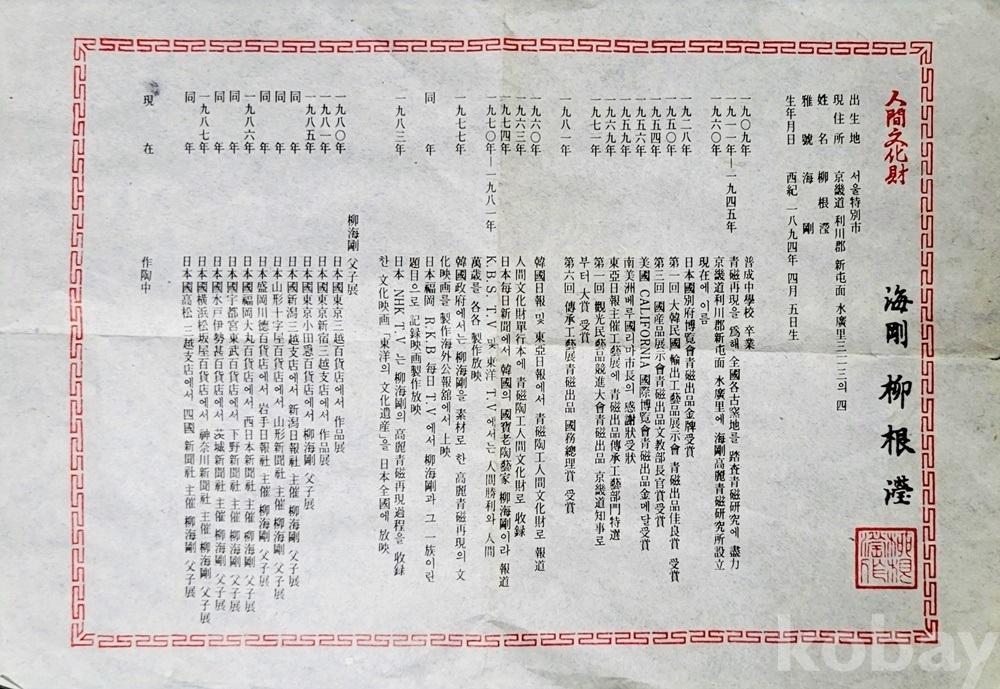 人間文化財
海剛 柳根瀅
出生地 서울特別市
現住所 京畿道 利川郡 新屯面 水廣里三一三의四
姓名 柳根瀅
雅號 海剛
生年月日 西紀 一八九四年 四月 五日生
一九〇九年 普成中學校 卒業
一九一一年―一九四五年 青磁再現을 爲해 全國各古窯地를 踏査青磁硏究에 盡力
一九六〇年 京畿道利川郡新屯面 水廣里에 海剛高麗青磁硏究所設立
現在에 이름
一九二八年 日本國別府博覽會青磁出品金牌受賞
一九五〇年 第一回 大韓民國 輸出工藝品展示會 青磁出品佳良賞 受賞
一九五四年 第三回 國産品展示會青磁出品文教部長官賞受賞
一九五六年 美國 CALIFORNIA 國際博覽會青磁出品金메달受賞
一九五九年 南美洲페루國리마市長의 感謝狀受狀
一九六九年 東亞日報主催工藝展에 青磁出品傳承工藝部門特選
一九七一年 第一回 觀光民藝品競進大會青磁出品 京畿道知事로
부터 大賞 受賞
一九八一年 第六回 傳承工藝展青磁出品 國務總理賞 受賞
一九六〇年 韓國日報 및 東亞日報에서 青磁陶工人間文化財로 報道
一九六三年 人間文化財單行本에 青磁陶工人間文化財로 收録
一九七四年 日本每日新聞에서 韓國의 國寶老陶藝家 柳海剛이라 報道
一九七〇年―一九八一年 K.B.S.T.V 및 東洋 T.V에서는 人間勝利와 人間
萬歲를 各各 製作放映
一九七七年 韓國政府에서는 柳海剛을 素材로 한 高麗青磁再現의 文
化映画를 製作海外公報舘에서 上映
同 年 日本福岡 R.K.B 每日 T.V에서 柳海剛과 그 一族이란
題目으로 記録映画製作放映
一九八三年 日本 NHK T.V는 柳海剛의 高麗青磁再現過程을 收録
한 文化映画「東洋의 文化遺産」을 日本全國에 放映
柳海剛 父子展
一九八〇年 日本國東京三越百貨店에서 作品展
一九八一年 日本國東京新宿三越支店에서 作品展
一九八五年 日本國東京小田急百貨店에서 柳海剛 父子展
同 年 日本國新潟三越支店에서 新潟日報社 主催 柳海剛 父子展
同 年 日本山形十字屋百貨店에서 山形新聞社 主催 柳海剛 父子展
同 年 日本盛岡川德百貨店에서 岩手日報社 主催 柳海剛 父子展
一九八六年 日本國福岡大丸百貨店에서 西日本新聞社 主催 柳海剛 父子展
同 年 日本國宇都宮東武百貨店에서 下野新聞社 主催 柳海剛 父子展
同 年 日本國水戸伊勢甚百貨店에서 茨城新聞社 主催 柳海剛 父子展
一九八七年 日本國橫浜松坂屋百貨店에서 神奈川新聞社 主催 柳海剛 父子展
同 年 日本國高松 三越支店에서 四國 新聞社 主催 柳海剛 父子展
現 在 作陶中
kobay